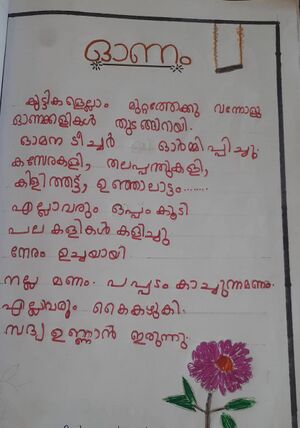 ഓണം
കുട്ടികളെല്ലാം മുറ്റത്തേക്കു വന്നോളൂ
ഓണക്കളികൾ തുടങ്ങാറായി.
ഓമന ടീച്ചർ ഓർമ്മിപ്പിച്ചു.
കസേരകളി, തലപ്പന്തുകളി,
കിളിത്തട്ട്, ഊഞ്ഞാലാട്ടം.......
എല്ലാവരും ഒപ്പം കൂടി
പല കളികൾ കളിച്ചു
നേരം ഉച്ചയായി
നല്ല മണം. പപ്പടം കാച്ചുന്നമണം.
എല്ലാവരും കൈകഴുകി.
സദ്യ ഉണ്ണാൻ ഇരുന്നു.